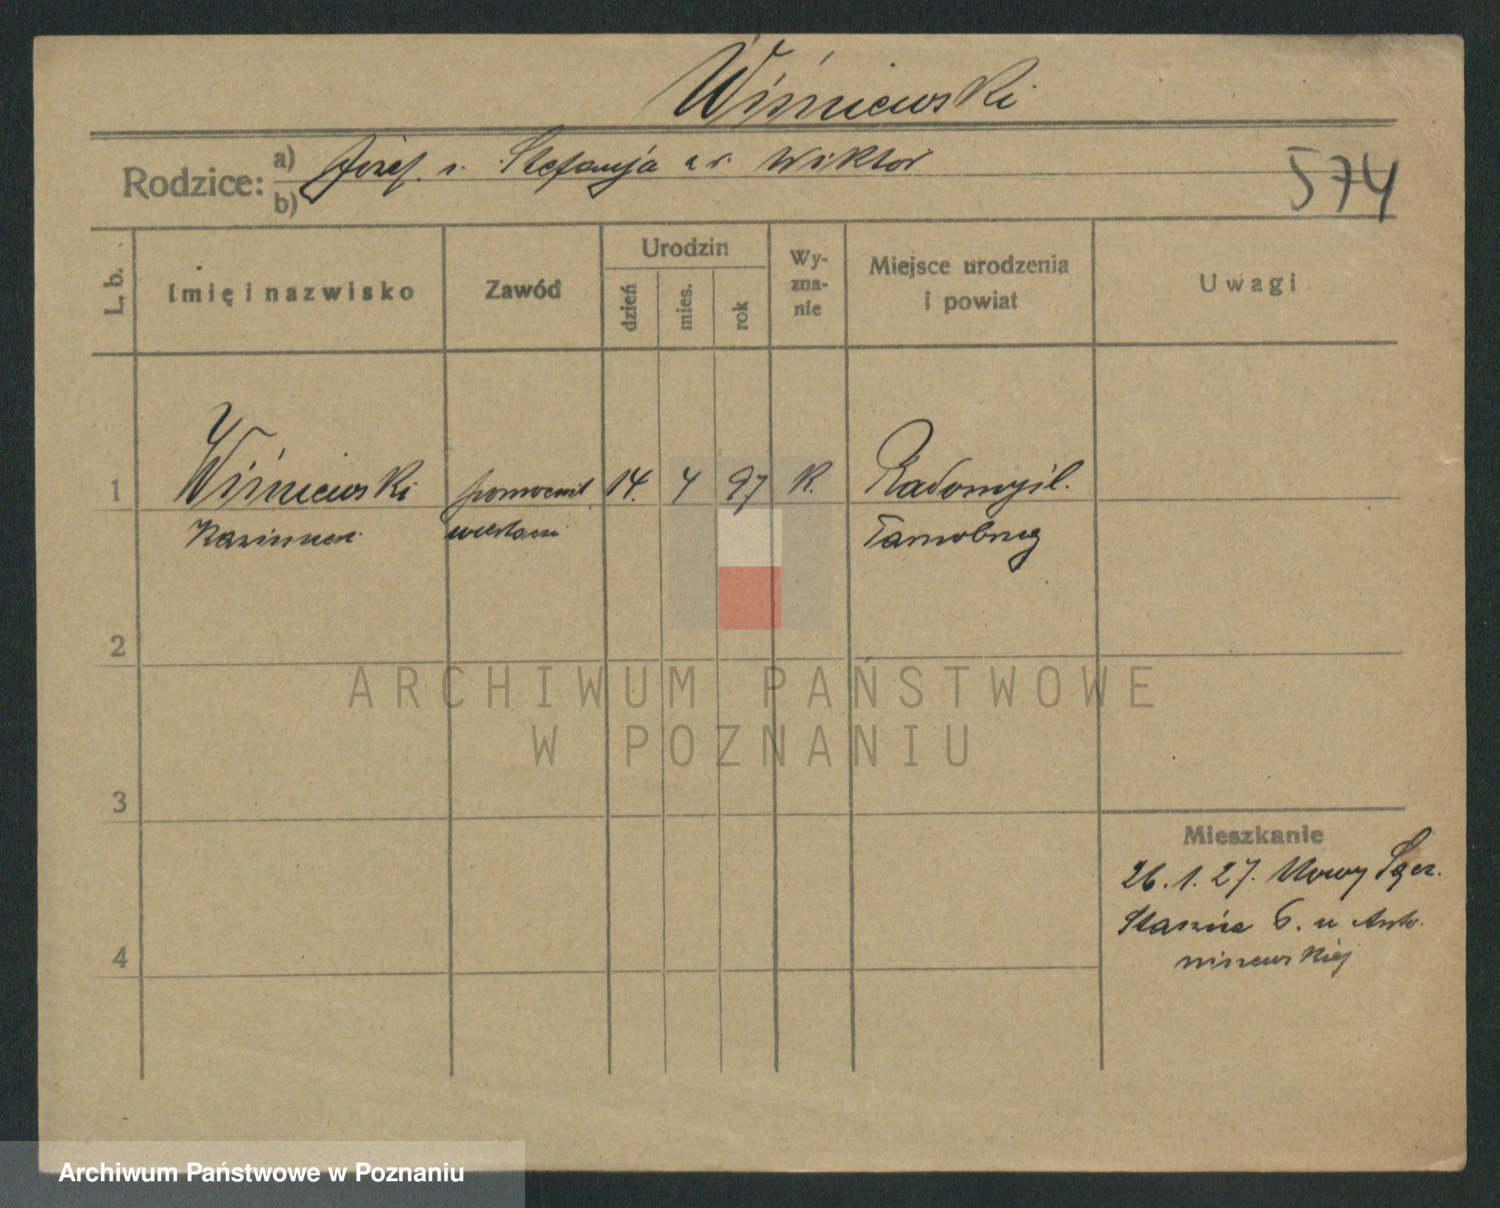 Wiśniewski
Rodzice: a) Józef i Stefanja z d. Wiktor
b)
574
L. b.
Imię i nazwisko
Zawód
Urodzin
dzień
mies.
rok
Wy-
zna-
nie
Miejsce urodzenia
i powiat
Uwagi
1 Wiśniewski pomocnik 14. 4 97 R. Radomyśl.
Kazimierz Tarnobrzeg
2
ARCHIWUM PAŃSTWOWE
W POZNANIU
3
Mieszkanie
26.1.27. Nowy Sącz.
Staszica 6. u Anto
niszewskiej
4
Archiwum Państwowe w Poznaniu